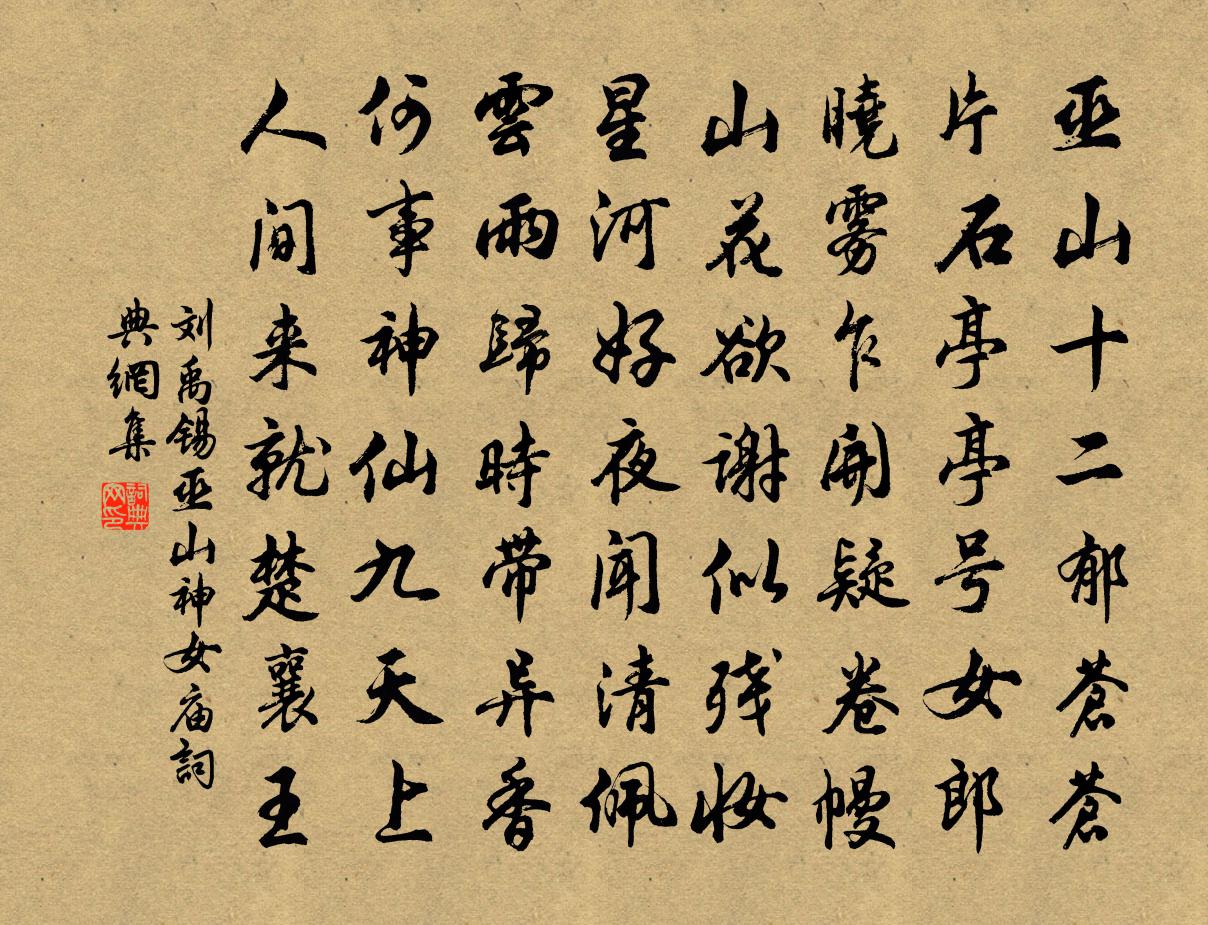 巫山十二郁蒼蒼
片石亭亭号女郎
曉雾乍開疑卷幔
山花欲谢似残妆
星河好夜闻清佩
雲雨歸時带异香
何事神仙九天上
人间来就楚襄王
刘禹锡巫山神女庙詞
典網集
詞典
网印